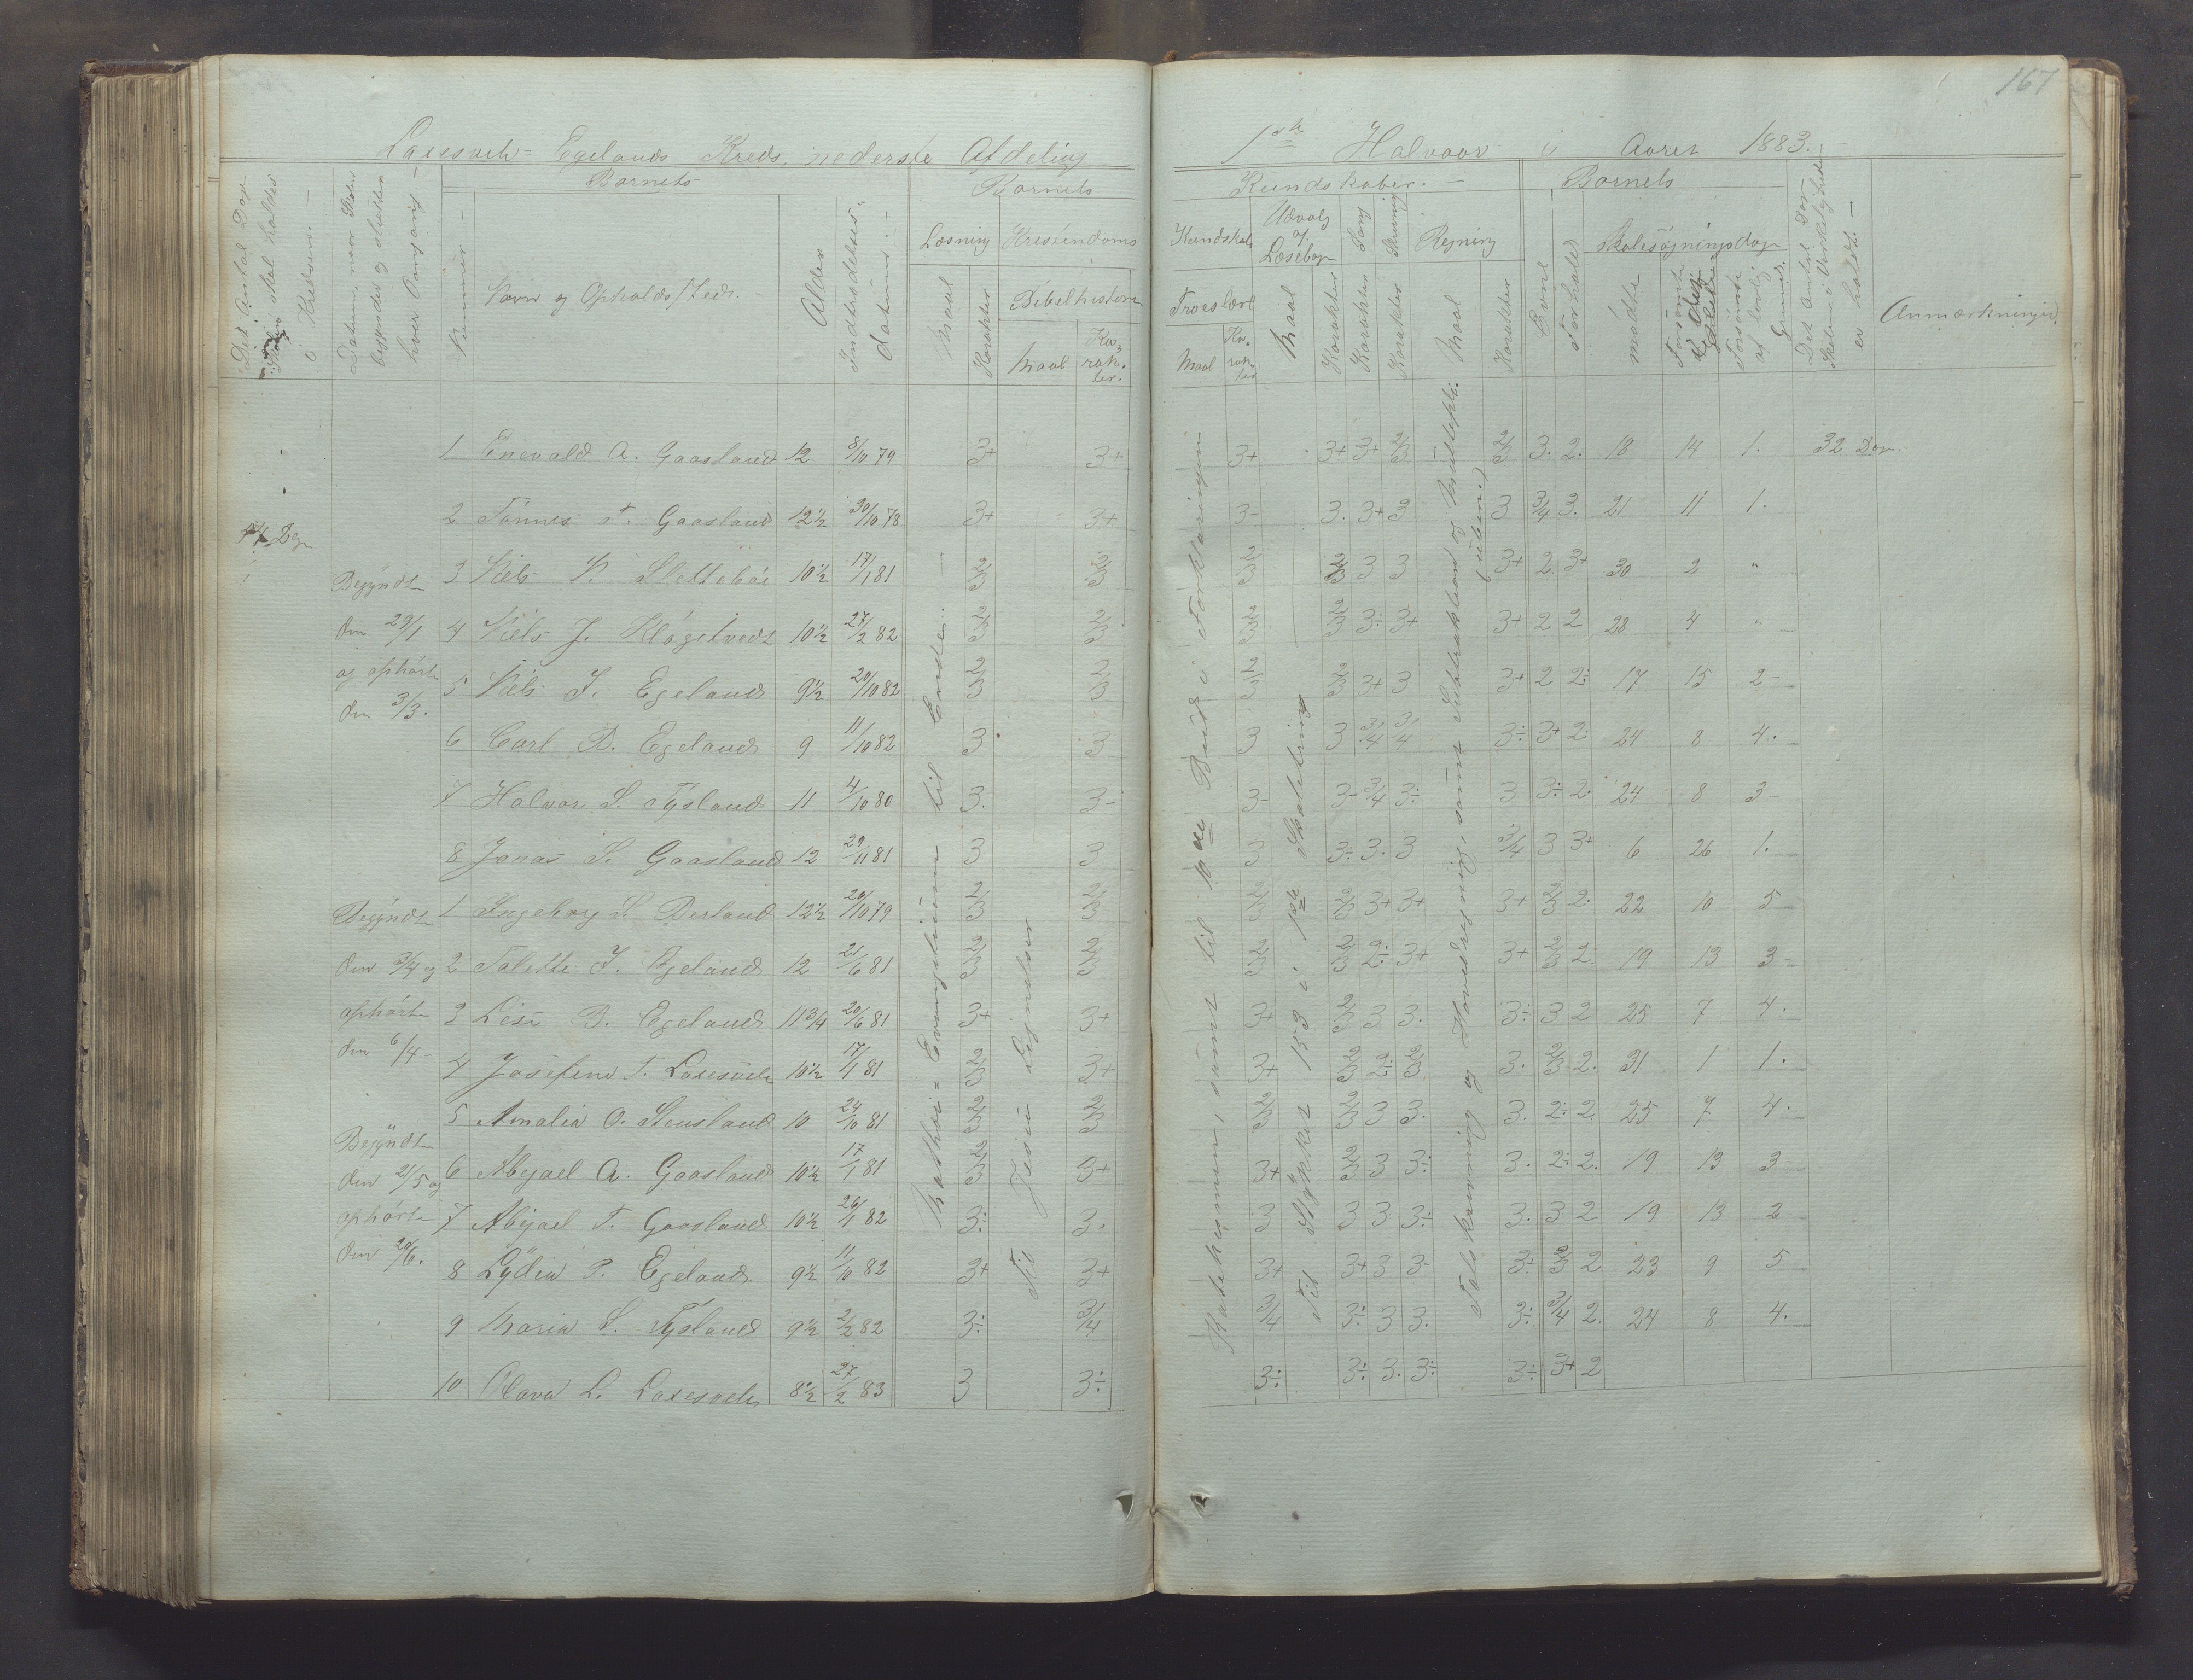 167
Laxesvelv- Egelands Kreds, nederste Afdeling
1ste Halvaar i Aaret 1883.
Det Antal Dage Skolen skal holdes i Kredsen.
Datum, naar Skolen begynder og slutter hver Omgang
Barnets
Nummer
Navn og Opholds/Sted.
Alder
Indtrædelses-datum.
Barnets
Læsning
Kristendoms
Maal
Karakter
Bibelhistorie
Maal
Karakter.
Kundskaber.
Kundskab
Troeslære
Maal
Karakter
Udvalg af Læsebog
Maal
Karakter
Sang
Karakter
Skrivning
Karakter
Regning
Maal
Karakter
Barnets
Evne
Forhold
Skolesøgningsdage
mødte
forsømte
forsømte af lovlig Grund.
Det Antal Dage Skolen i Virkeligheden er holdt.
Anmærkninger.
Dage
Begyndt
den 23/1
og ophørt
den 3/3.
Begyndt
den 3/4 og
ophørt
den 6/4
Begyndt
den 21/5 og
ophørte
den 20/6.
Mathæi Evangelium til Ende.
Til Jesu Lignelser
Katekismum, samt til 10de Bud i Forklaringen
Til Stykket 153 i 1ste Skoletrin
Talskrivning og Hovedregning, samt Subtraktion og Multipli. (uben.)
1 Enevald A. Gaasland 12 8/10 79 3+ 3+ 3+ 3+ 3+ 2/3 2/3 3. 2. 18 14 1. 32 Dage
2 Tønnes T. Gaasland 12½ 30/10 78 3+ 3+ 3- 3. 3+ 3 3 3/4 3. 21 11 1.
3 Niels P. Slettebøe 10½ 17/1 81 2/3 2/3 2/3 2/3 3 3 3+ 2. 3+ 30 2 "
4 Niels J. Kløgetvedt 10½ 27/2 82 2/3 2/3 2/3 2/3 3÷ 3+ 3+ 2 2 28 4 "
5 Niels J. Egeland 9½ 20/10 82 2/3 2/3 2/3 2/3 3+ 3 3+ 2 2÷ 17 15 2
6 Carl B. Egeland 9 11/10 82 3 3 3 3 3/4 3/4 3÷ 3+ 2. 24 8 4.
7 Halvor S. Tysland 11 4/10 80 3. 3- 3- 3- 3/4 3÷ 3 3÷ 2. 24 8 3
8 Jonas S. Gaasland 12 29/11 81 3 3 3 3÷ 3. 3 3/4 3 3+ 6 26 1.
1 Ingeborg S. Bersland 12½ 20/10 79 2/3 2/3 2/3 2/3 3+ 3+ 3+ 2/3 2. 22 10 5
2 Talette J. Egeland 12 21/6 81 2/3 2/3 2/3 2/3 2÷ 3+ 3+ 2/3 2. 19 13 3
3 Lise B. Egeland 11¾ 20/6 81 3+ 3+ 3+ 2/3 3 3. 3÷ 3 2 25 7 4.
4 Josefine T. Laxesvelv 10½ 17/1 81 2/3 3+ 3+ 2/3 2÷ 2/3 3. 2/3 2. 31 1 1.
5 Amalia O. Stensland 10 24/10 81 2/3 2/3 2/3 2/3 3 3. 3. 2÷ 2. 25 7 4.
6 Abigael A. Gaasland 10½ 17/1 81 2/3 3+ 3+ 2/3 3 3÷ 3. 2÷ 2. 19 13 3
7 Abigael T. Gaasland 10½ 26/1 82 3÷ 3. 3 3 3 3÷ 3. 3 2 19 13 2
8 Lydia P. Egeland. 9½ 11/10 82 3+ 3+ 3+ 3+ 3 3- 3÷ 2/3 2 23 9 5
9 Maria S. Tysland 9½ 2/2 82 3÷ 3/4 3/4 3÷ 3 3. 3÷ 3/4 2. 24 8 4.
10 Olava L. Laxesvelv 8½ 27/2 83 3 3÷ 3÷ 3÷ 3. 3÷ 3÷ 3+ 2